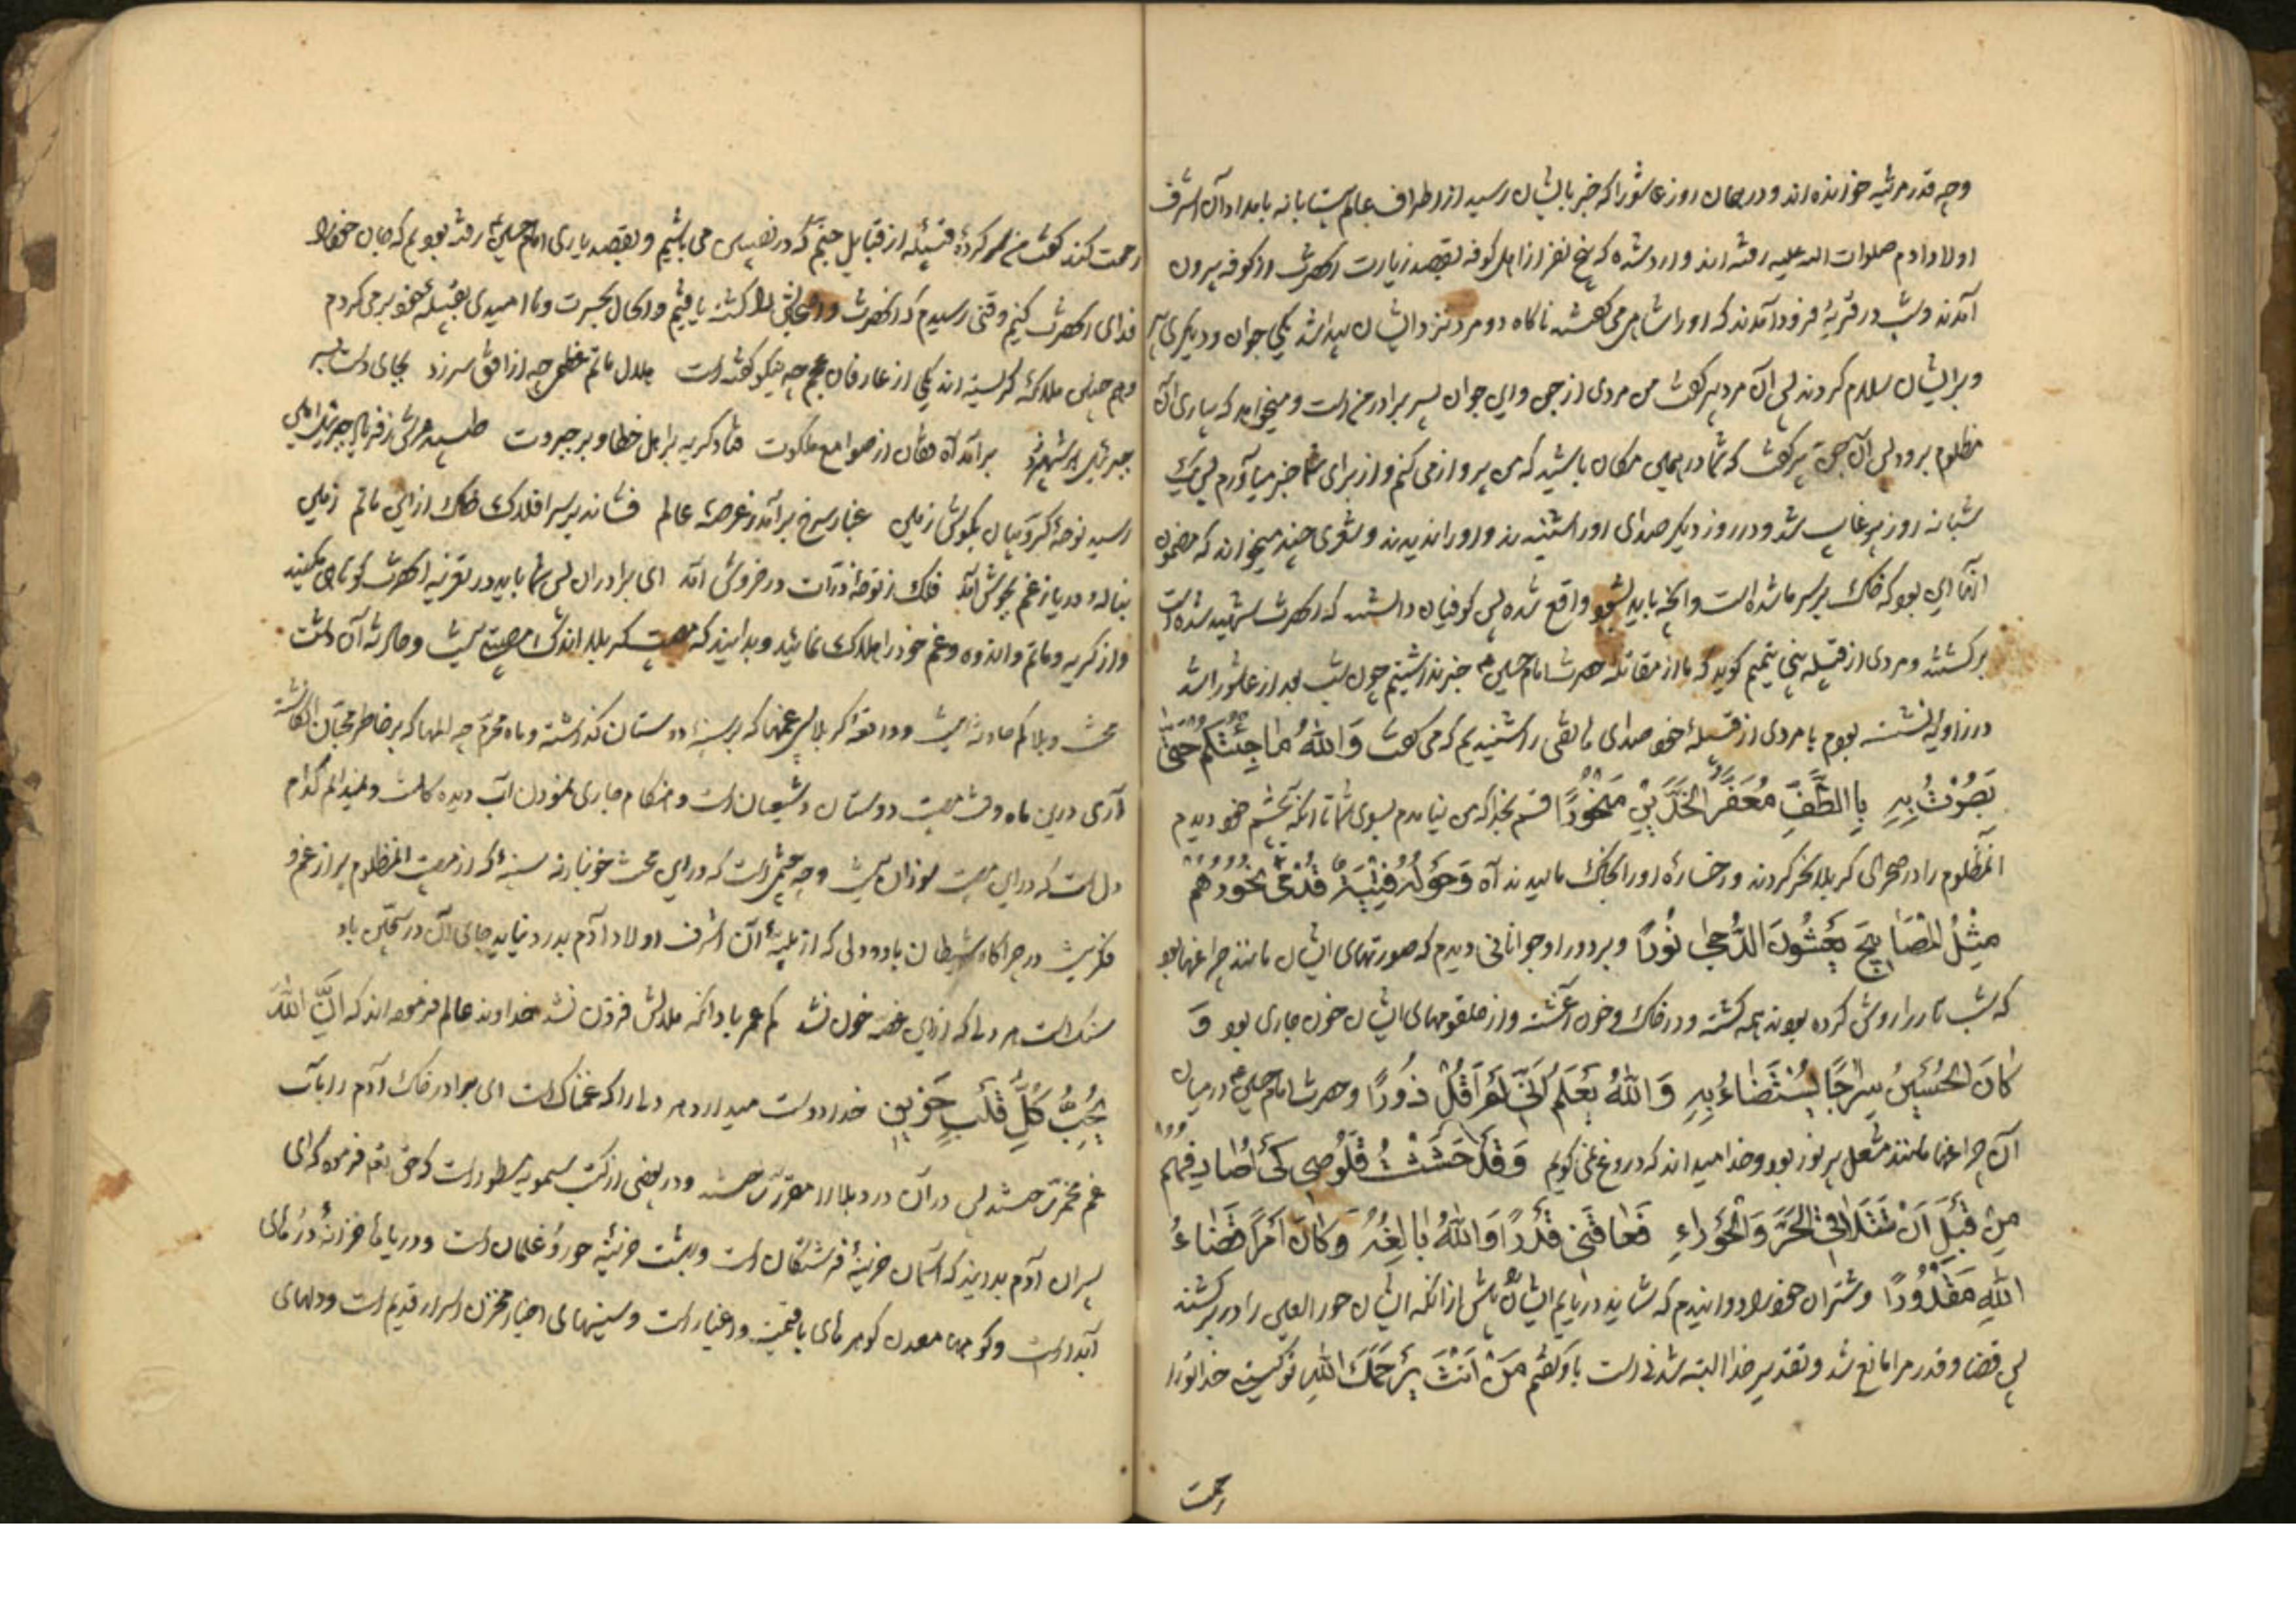 وچه قدر مرثیه خوانده اند و در همان روز عاشورا که خبر بایشان رسید از اطراف عالم شتابانه بامداد آن اشرف
اولاد آدم صلوات الله علیه رفته اند و وارد شده که پنج نفر از اهل کوفه بقصد زیارت آنحضرت از کوفه بیرون
آمدند و شب در قریهٔ فرود آمدند که اورا شاهی می گفتند ناگاه دو مرد نزد ایشان پیدا شد یکی جوان و دیگری پیر
و بر ایشان سلام کردند پس آن مرد پیر گفت من مردی از جن و این جوان پسر برادر من است و میخواهد که بیاری آن
مظلوم برود پس آن جنی پیر گفت که شما در همین مکان باشید که من پرواز می کنم و از برای شما خبر میآورم پس یک
شبانه روز پیر غایب شد و در روز دیگر صدای اورا شنیدند و اورا ندیدند و شعری چند میخواند که مضمون
آنها این بود که خاک بر سر ما شده است و آنچه باید بشود واقع شده پس کوفیان دانستند که آنحضرت شهید شده است
برگشتند و مردی از قبیله بنی تمیم گوید که ما از مقاتله حضرت امام حسین خبر نداشتیم چون شب بعد از عاشورا شد
در زاویهٔ نشسته بودم با مردی از قبیلهٔ خود صدای هاتفی را شنیدیم که می گفت وَاللّٰهُ مَا جِئْتُكُم حَتّیٰ
بَصُرْتُ بِهِ بِالطَّفِّ مُعَفَّرَ الْخَدَّیْنِ مَنْحُوْرًا قسم بخدا که من نیامدم بسوی شما تا آنکه بچشم خود دیدم
آنمظلوم را در صحرای کربلا نحر کردند و رخسارهٔ اورا بخاک مالیدند آه وَحَوْلَهُ فِتْیَةٌ تُدْمیٰ نُحُوْرُهُم
مِثْلُ الْمَصَابِیْحَ یَغْشُوْنَ الدُّجیٰ نُوْرًا و بر دور او جوانانی دیدم که صورتهای ایشان مانند چراغها بود
که شب تار را روشن کرده بودند همه کشته و در خاک و خون آغشته و از حلقومهای ایشان خون جاری بود وَ
كَانَ الْحُسَیْنُ سِرَاجًا یُسْتَضَاءُ بِهِ وَاللّٰهُ یَعْلَمُ اَنّی لَمْ اَقُلْ زُوْرًا و حضرت امام حسین در میان
آن چراغها مانند مشعل پر نور بود و خدا میداند که دروغ نمی گویم وَقَدْ حَثَثْتُ قَلُوْصِی كَیْ اُصَادِفَهُم
مِنْ قَبْلِ اَنْ تَتَلَاقَ الْحُرَّ وَالْحَوْرَاءِ فَعَاقَنِی قَدَرٌ وَاللّٰهُ بَالِغُهُ وَكَانَ اَمْرًا قَضَاءُ
اللّٰهِ مَقْدُوْرًا و شتران خود را دوانیدم که شاید دریابم ایشان را پیش از آنکه ایشان حور العین را در برکشند
پس قضا و قدر مرا مانع شد و تقدیر خدا البته شدنی است باو گفتم مَنْ اَنْتَ یَرْحَمُكَ اللّٰهِ تو کیستی خدا تورا
رحمت
رحمت کند گفت من سر کردهٔ قبیلهٔ از قبایل جنیم که در نصیبین می باشیم و بقصد یاری امام حسین رفته بودیم که جان خود را
فدای آنحضرت کنیم وقتی رسیدیم که آنحضرت و اصحابش را کشته یافتیم و الحال بحسرت و ناامیدی بقبیله خود بر می گردم
و هم چنین ملائکه گریسته اند یکی از عارفان عجم چه نیکو گفته است هلال ماتم عظمی چه از افق سر زد بجای دست بسر
جبرئیل بر شهپر زد برآمد آه فغان از صوامع ملکوت فتاد گریه بر اهل خطا و بر جبروت طپید عرش ز فریاد جبرئیل امین
رسید نوحهٔ کروبیان بگوش زمین غبار سرخ برآمد ز عرصهٔ عالم فشاند بر سر افلاک خاک از این ماتم زمین
بناله و دریا ز غم بجوش آمد فلک ز نوحهٔ ذرات در خروش آمد ای برادران پس شما باید در تعزیه آنحضرت کوتاهی مکنید
و از گریه و ماتم و اندوه و غم خود را هلاک نمائید و بدانید که مصیبت کربلا اندک مصیبتی نیست و حادثه آن دشت
محنت و بلا کم حادثه نیست و واقعه کربلا بس غمها که بر سینهٔ دوستان گذاشته و ماه محرم چه المها که بر خاطر محبان انگاشته
آری درین ماه وقت مصیبت دوستان و شیعیان است و هنگام جاری نمودن آب دیده کانست و نمیدانم کدام
دل است که در این مصیبت سوزان نیست و چه چشم است که در این محنت خونبار نه سینهٔ که از مصیبت آنمظلوم پر از غم و
فکر نیست در چراگاه شیطان باد و دلی که از بلیهٔ آن اشرف اولاد آدم بدرد نیاید جای آن در سجّین باد
سنک است هر دلی که از این غصه خون نشد کم عمر باد آنکه ملالش فزون نشد خداوند عالم فرموده اند که اِنَّ اللّٰهَ
یُحِبُّ كُلَّ قَلْبٍ حَزِیْنٍ خدا دوست میدارد هر دلی را که غمناک است ای برادر خاک آدم را بآب
غم مخمّر ساختند پس در آن درد بلا را مقرر ساختند و در بعضی از کتب سماویه مسطور است که حق تعالی فرموده که ای
پسران آدم بدانید که آسمان خزینهٔ فرشتگان است و بهشت خزینهٔ حور و غلمان است و دریاها خزانهٔ درهای
آبدار است و کوهها معدن گوهرهای با قیمت و اعتبار است و سینهای اخیار مخزن اسرار قدیم است و دلهای